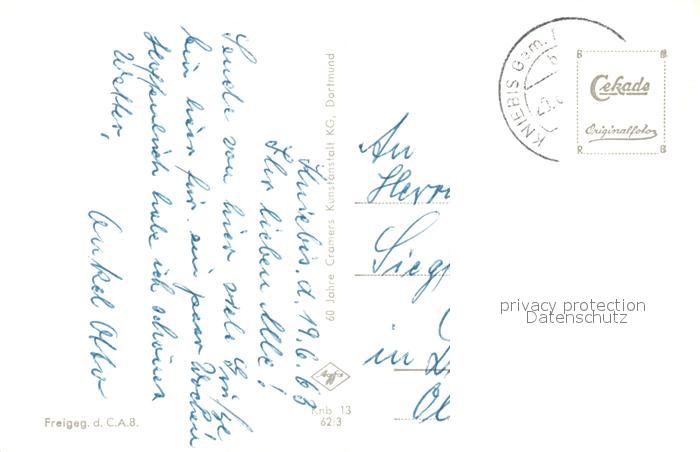 Kniebis. d. 19.6.63
Ihr lieben Alle!
Sende von hier viele Grüße
bin hier für ein paar Wochen
Hoffentlich habe ich schönes
Wetter,
Onkel Otto
60 Jahre Cramers Kunstanstalt KG, Dortmund
Agfa
Knb 13
62/3
Freigeg. d. C.A.B.
An
Herrn
in
KNIEBIS
Cekade
Originalfoto
privacy protection
Datenschutz